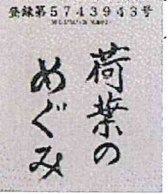 登録第5743943号
荷葉の
めぐみ